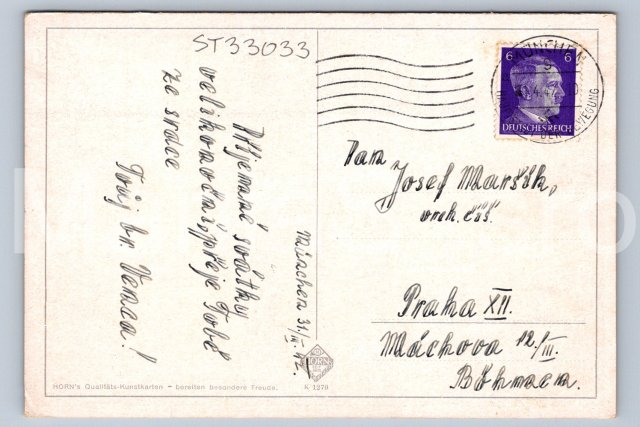 ST33033
Příjemné svátky
velikonoční, přeje Tobě
ze srdce
Tvůj br. Venca!
München 31/III. 42.
6 6
DEUTSCHES REICH
MÜNCHEN
DER BEWEGUNG
Pan
Josef Maršík,
vrch. číš.
Praha XII.
Máchova 12/III.
Böhmen.
HORN
HORN's Qualitäts-Kunstkarten – bereiten besondere Freude.
K 1279